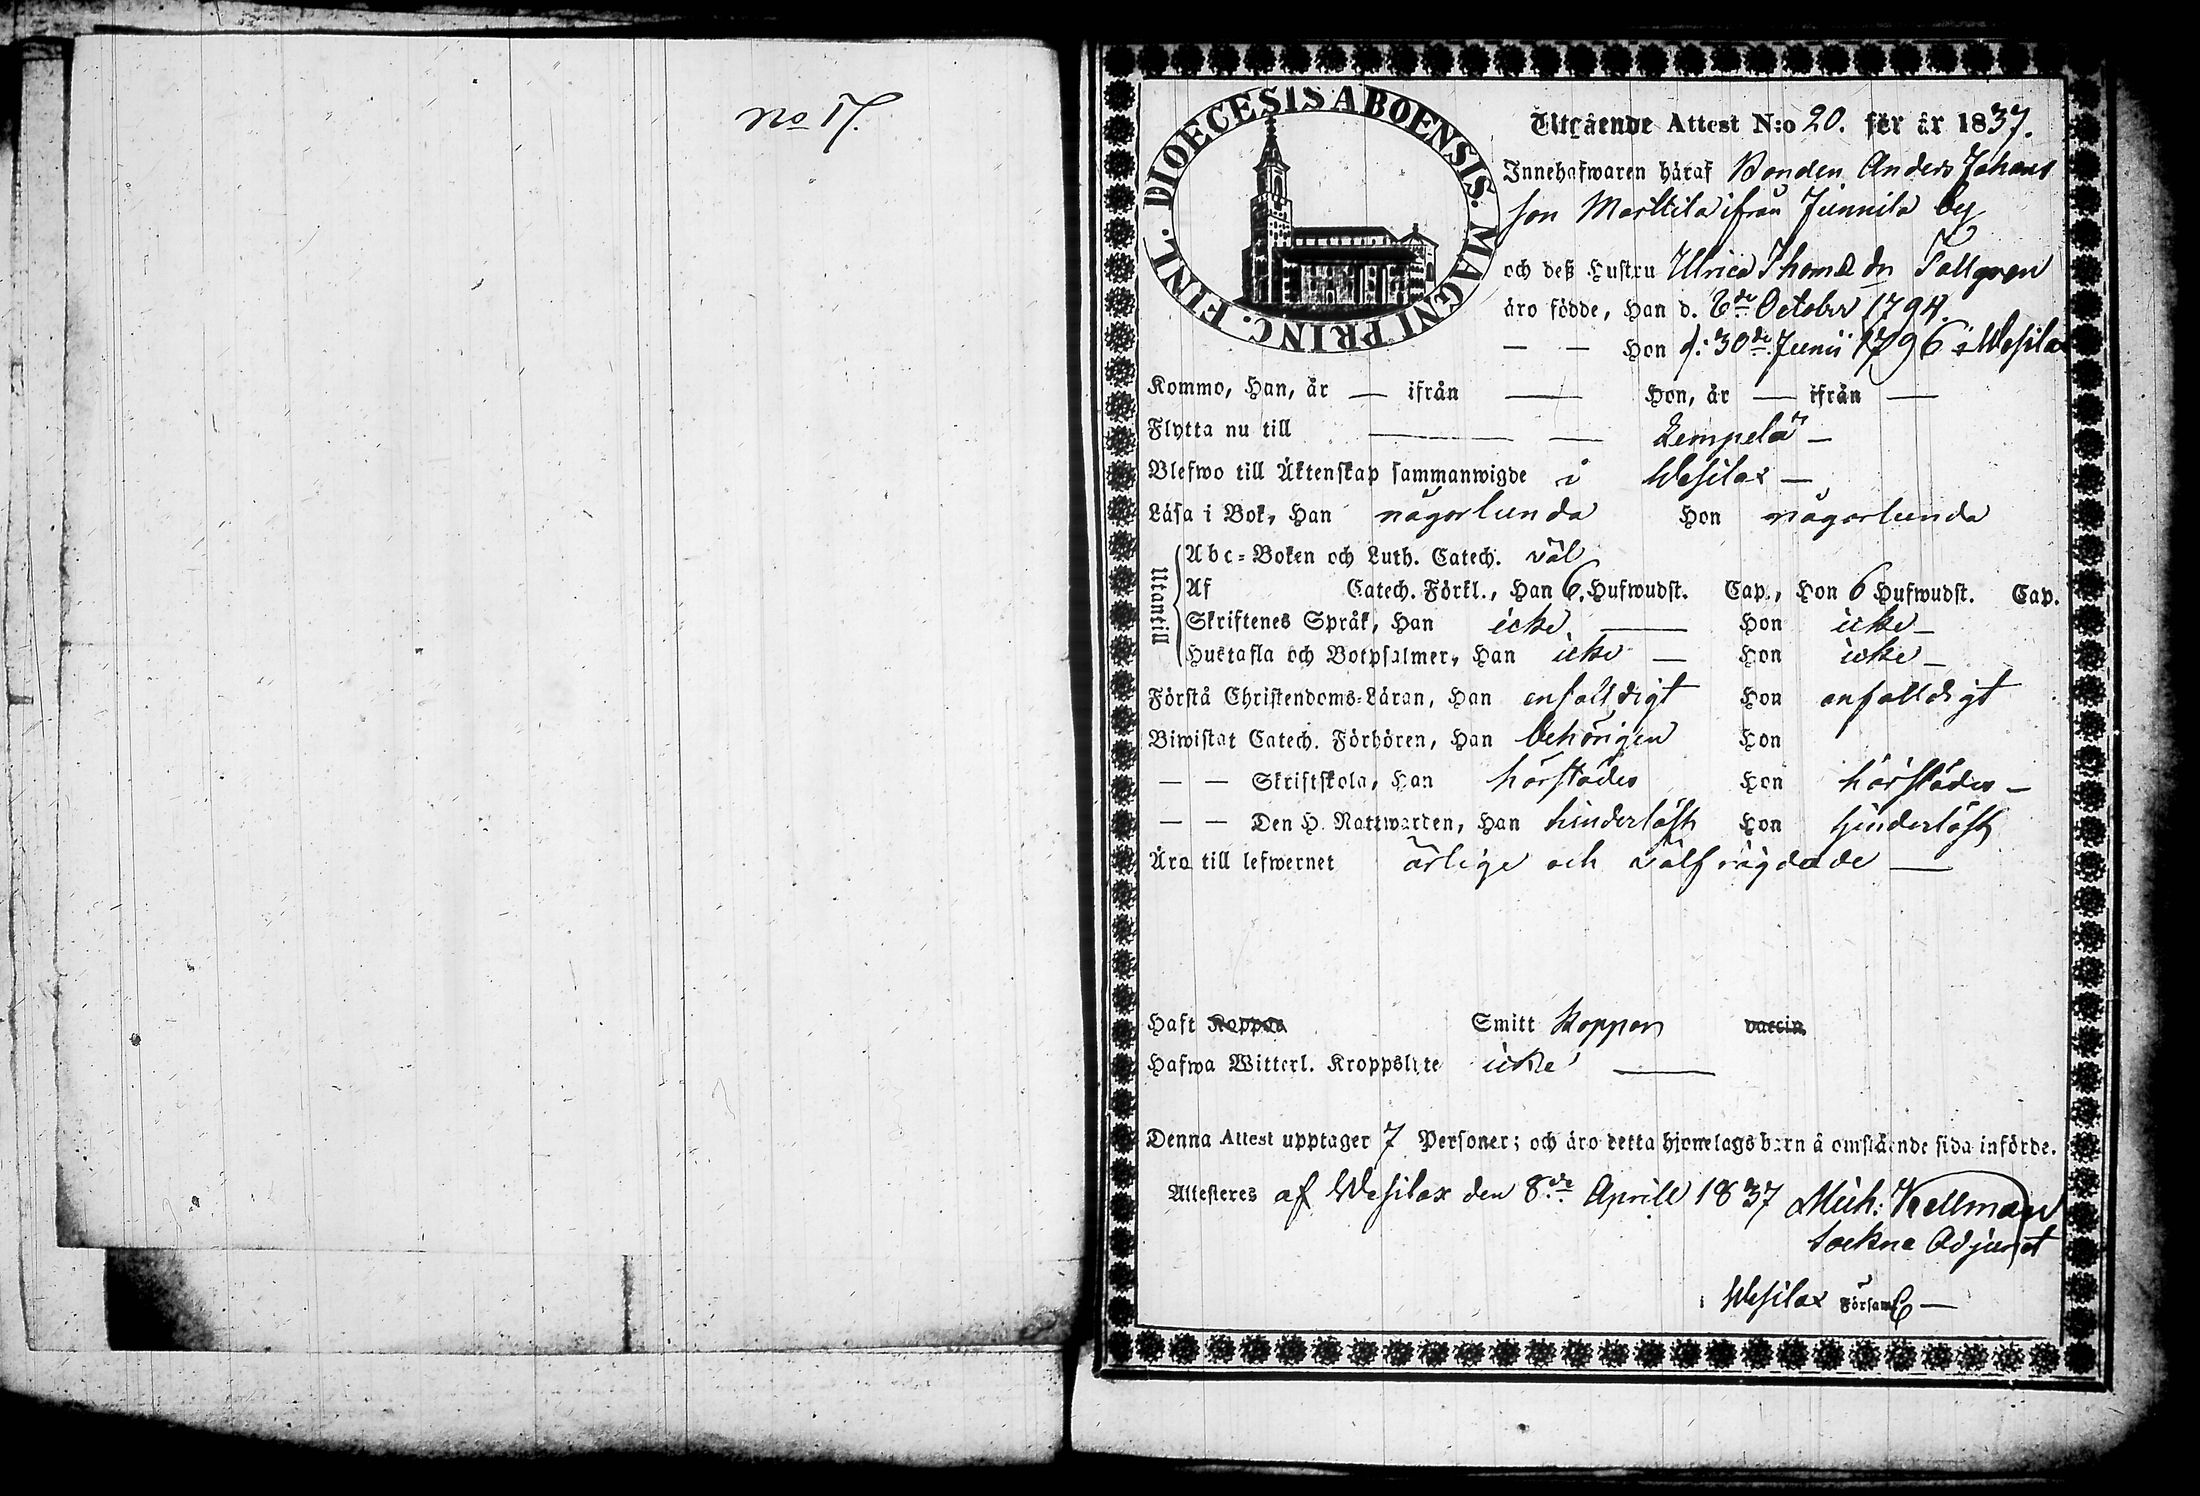 No 17.
DIOECESIS ABOENSIS. MAGNI PRINC. FINL.
Utgående Attest N:o 20. för år 1837.
Innehafwaren häraf Bonden Anders Johans
son Marttila ifrån Junnila by
och deß Hustru Ulrica Thomæ dr Tallgren
äro födde, Han d. 6de October 1794.
— — Hon d: 30de Junii 1796 i Wesilax
Kommo, Han, år — ifrån — Hon, år — ifrån —
Flytta nu till — — Lempelä —
Blefwo till Äktenskap sammanwigde i Wesilax —
Läsa i Bok, Han någorlunda Hon någorlunda
Utantill
Abc-Boken och Luth. Catech. väl
Af Catech. Förkl., Han 6. Hufwudst. Cap., Hon 6 Hufwudst. Cap.
Skriftenes Språk, Han icke — Hon icke —
Hustafla och Botpsalmer, Han icke — Hon icke —
Förstå Christendoms-Läran, Han enfalldigt Hon enfalldigt
Biwistat Catech. Förhören, Han behörigen Hon
— — Skriftskola, Han härstädes Hon härstädes —
— — Den H. Nattwarden, Han hinderlöst Hon hinderlöst
Äro till lefwernet ärlige och välfrägdade —
Haft Koppor Smitt koppor vaccin
Hafwa Witterl. Kroppslyte icke —
Denna Attest upptager 7 Personer; och äro detta hjonelags barn å omstående sida införde.
Attesteres af Wesilax den 8de Aprill 1837 Mich: Kellman
Sockne Adjunct
i Wesilax Församl —